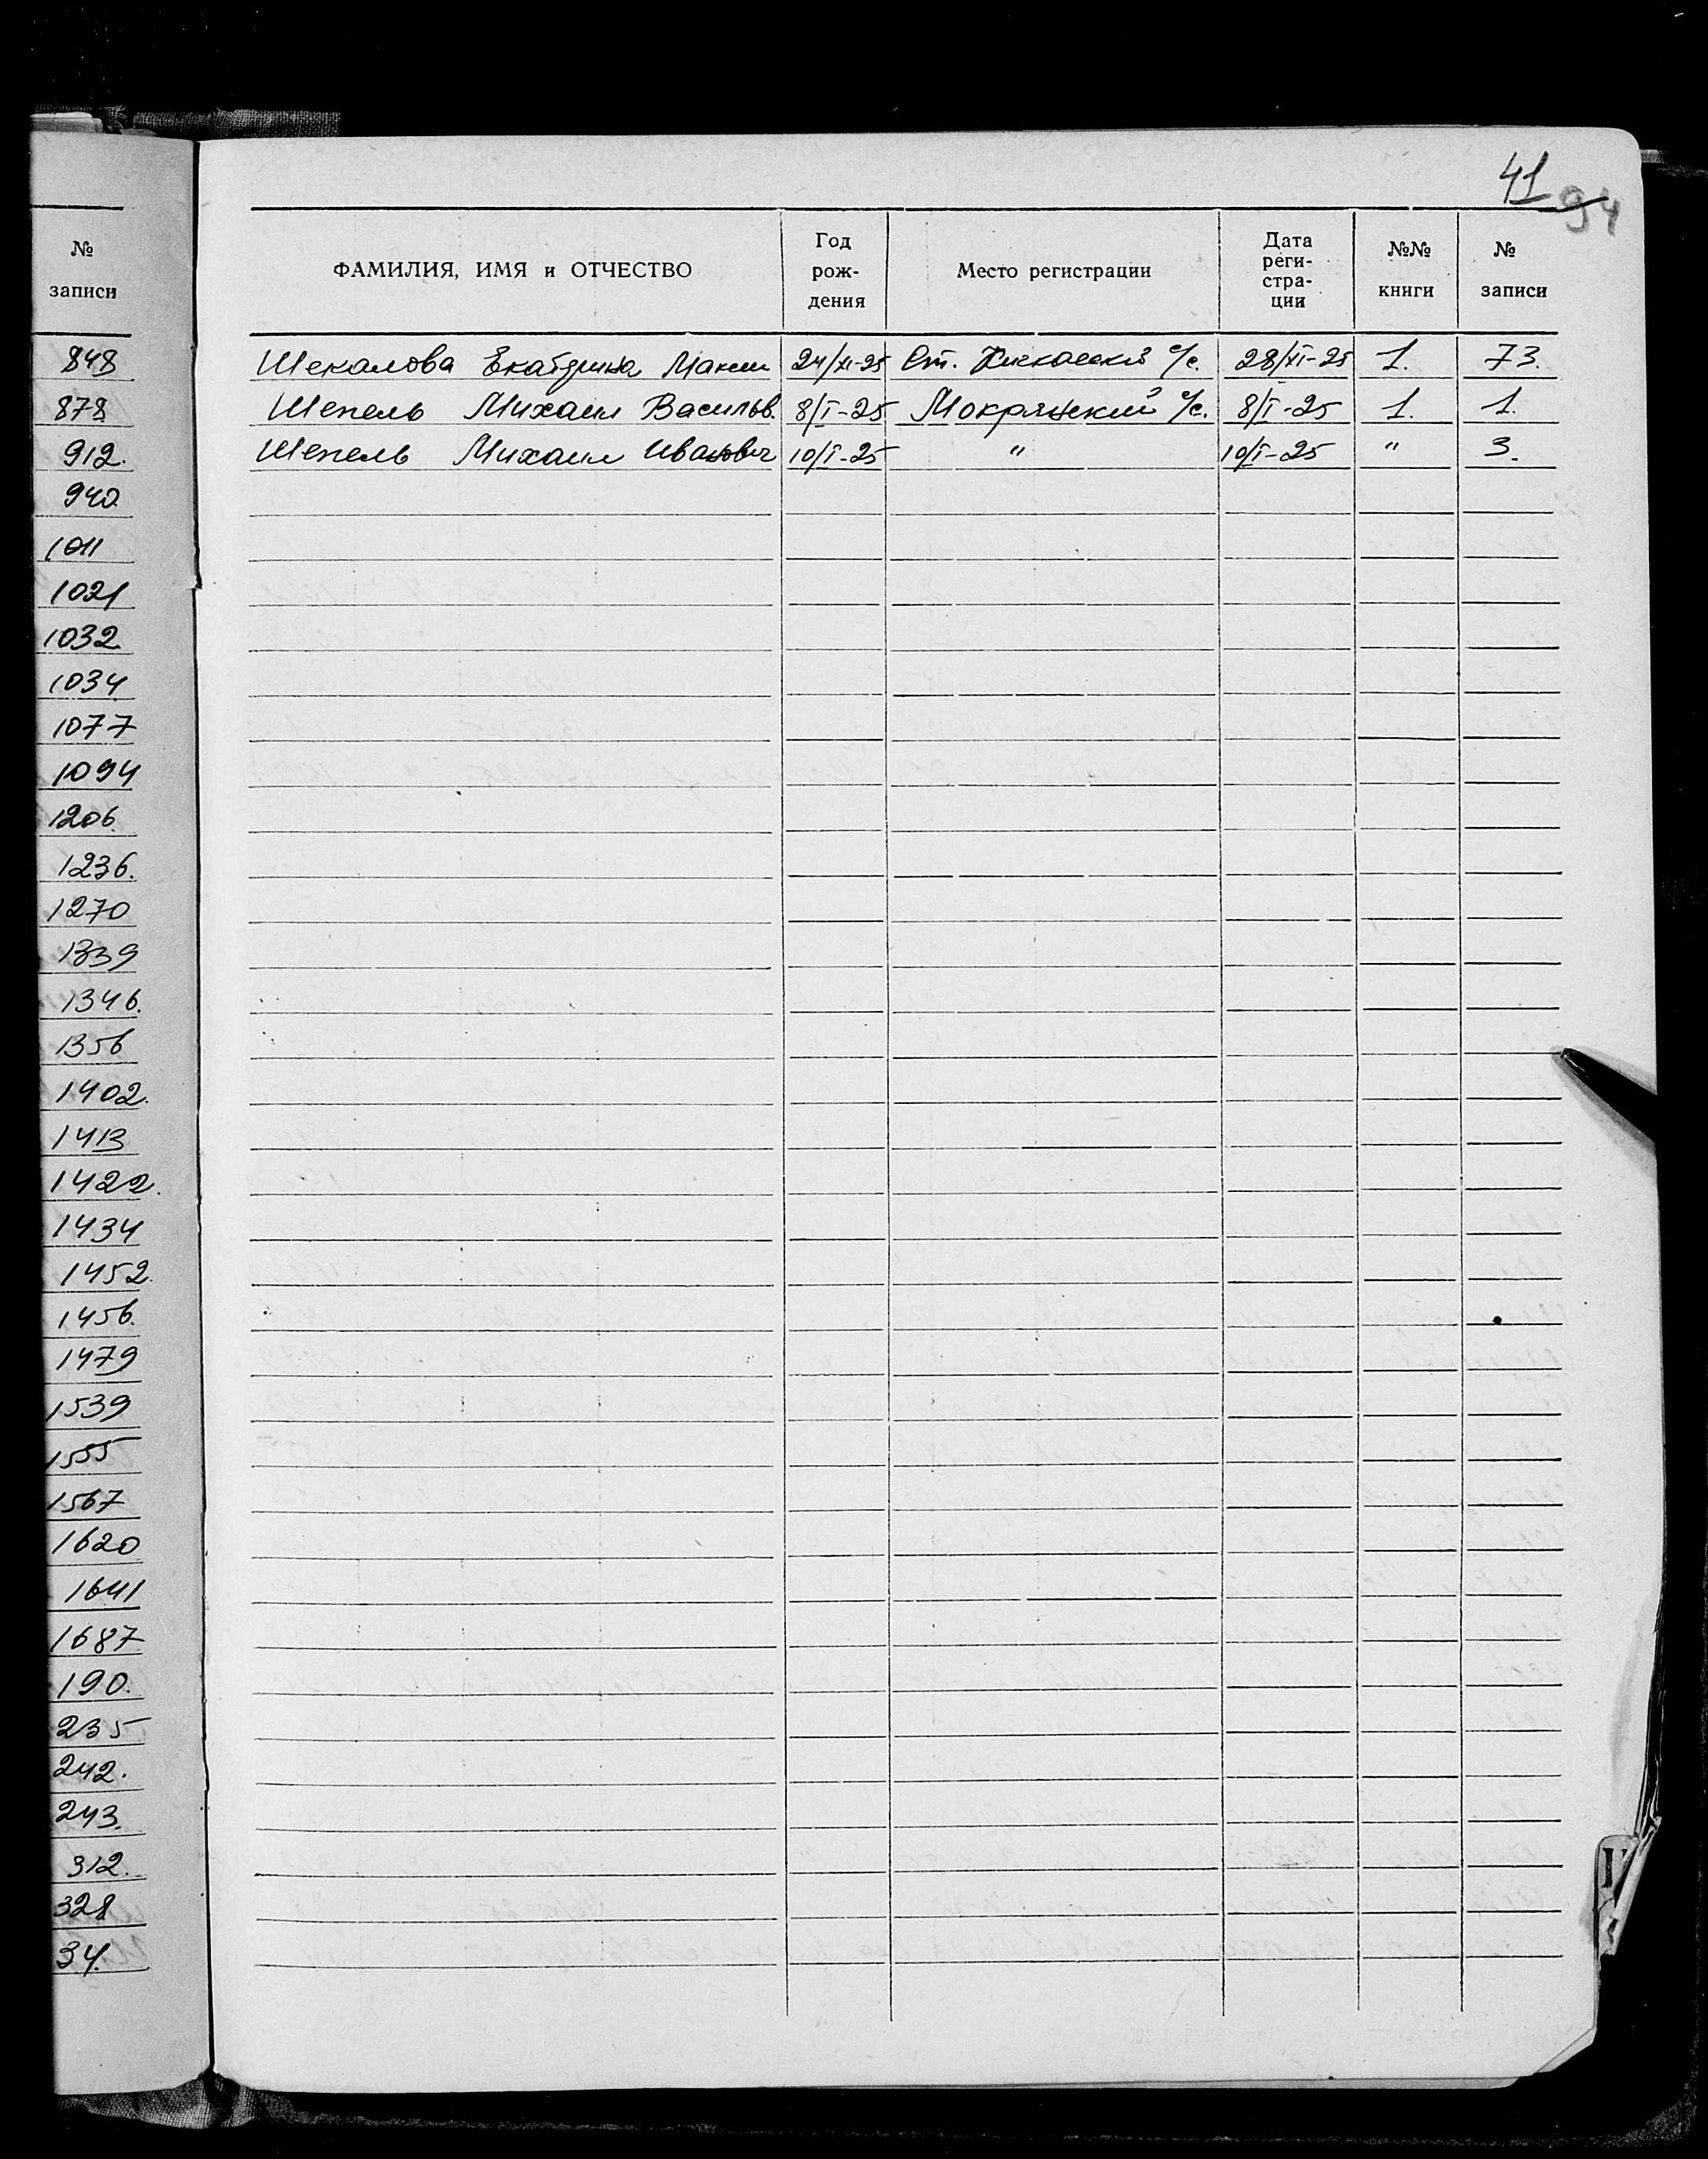 41
94
№
записи
848
878
912.
940
1011
1021
1032.
1034
1077
1094
1206.
1236.
1270
1339
1346.
1356
1402.
1413
1422.
1434
1452.
1456.
1479
1539
1555
1567
1620
1641
1687
190.
235
242.
243.
312.
328
34.
ФАМИЛИЯ, ИМЯ и ОТЧЕСТВО
Год рож- дения
Место регистрации
Дата реги- стра- ции
№№ книги
№ записи
Шекалова Екатерина Максим 24/XI-25 Ст. с/с. 28/XI-25 1. 73.
Шепель Михаил Васильв. 8/I-25 Мокрянский с/с. 8/I-25 1. 1.
Шепель Михаил Иванович 10/I-25 " 10/I-25 " 3.